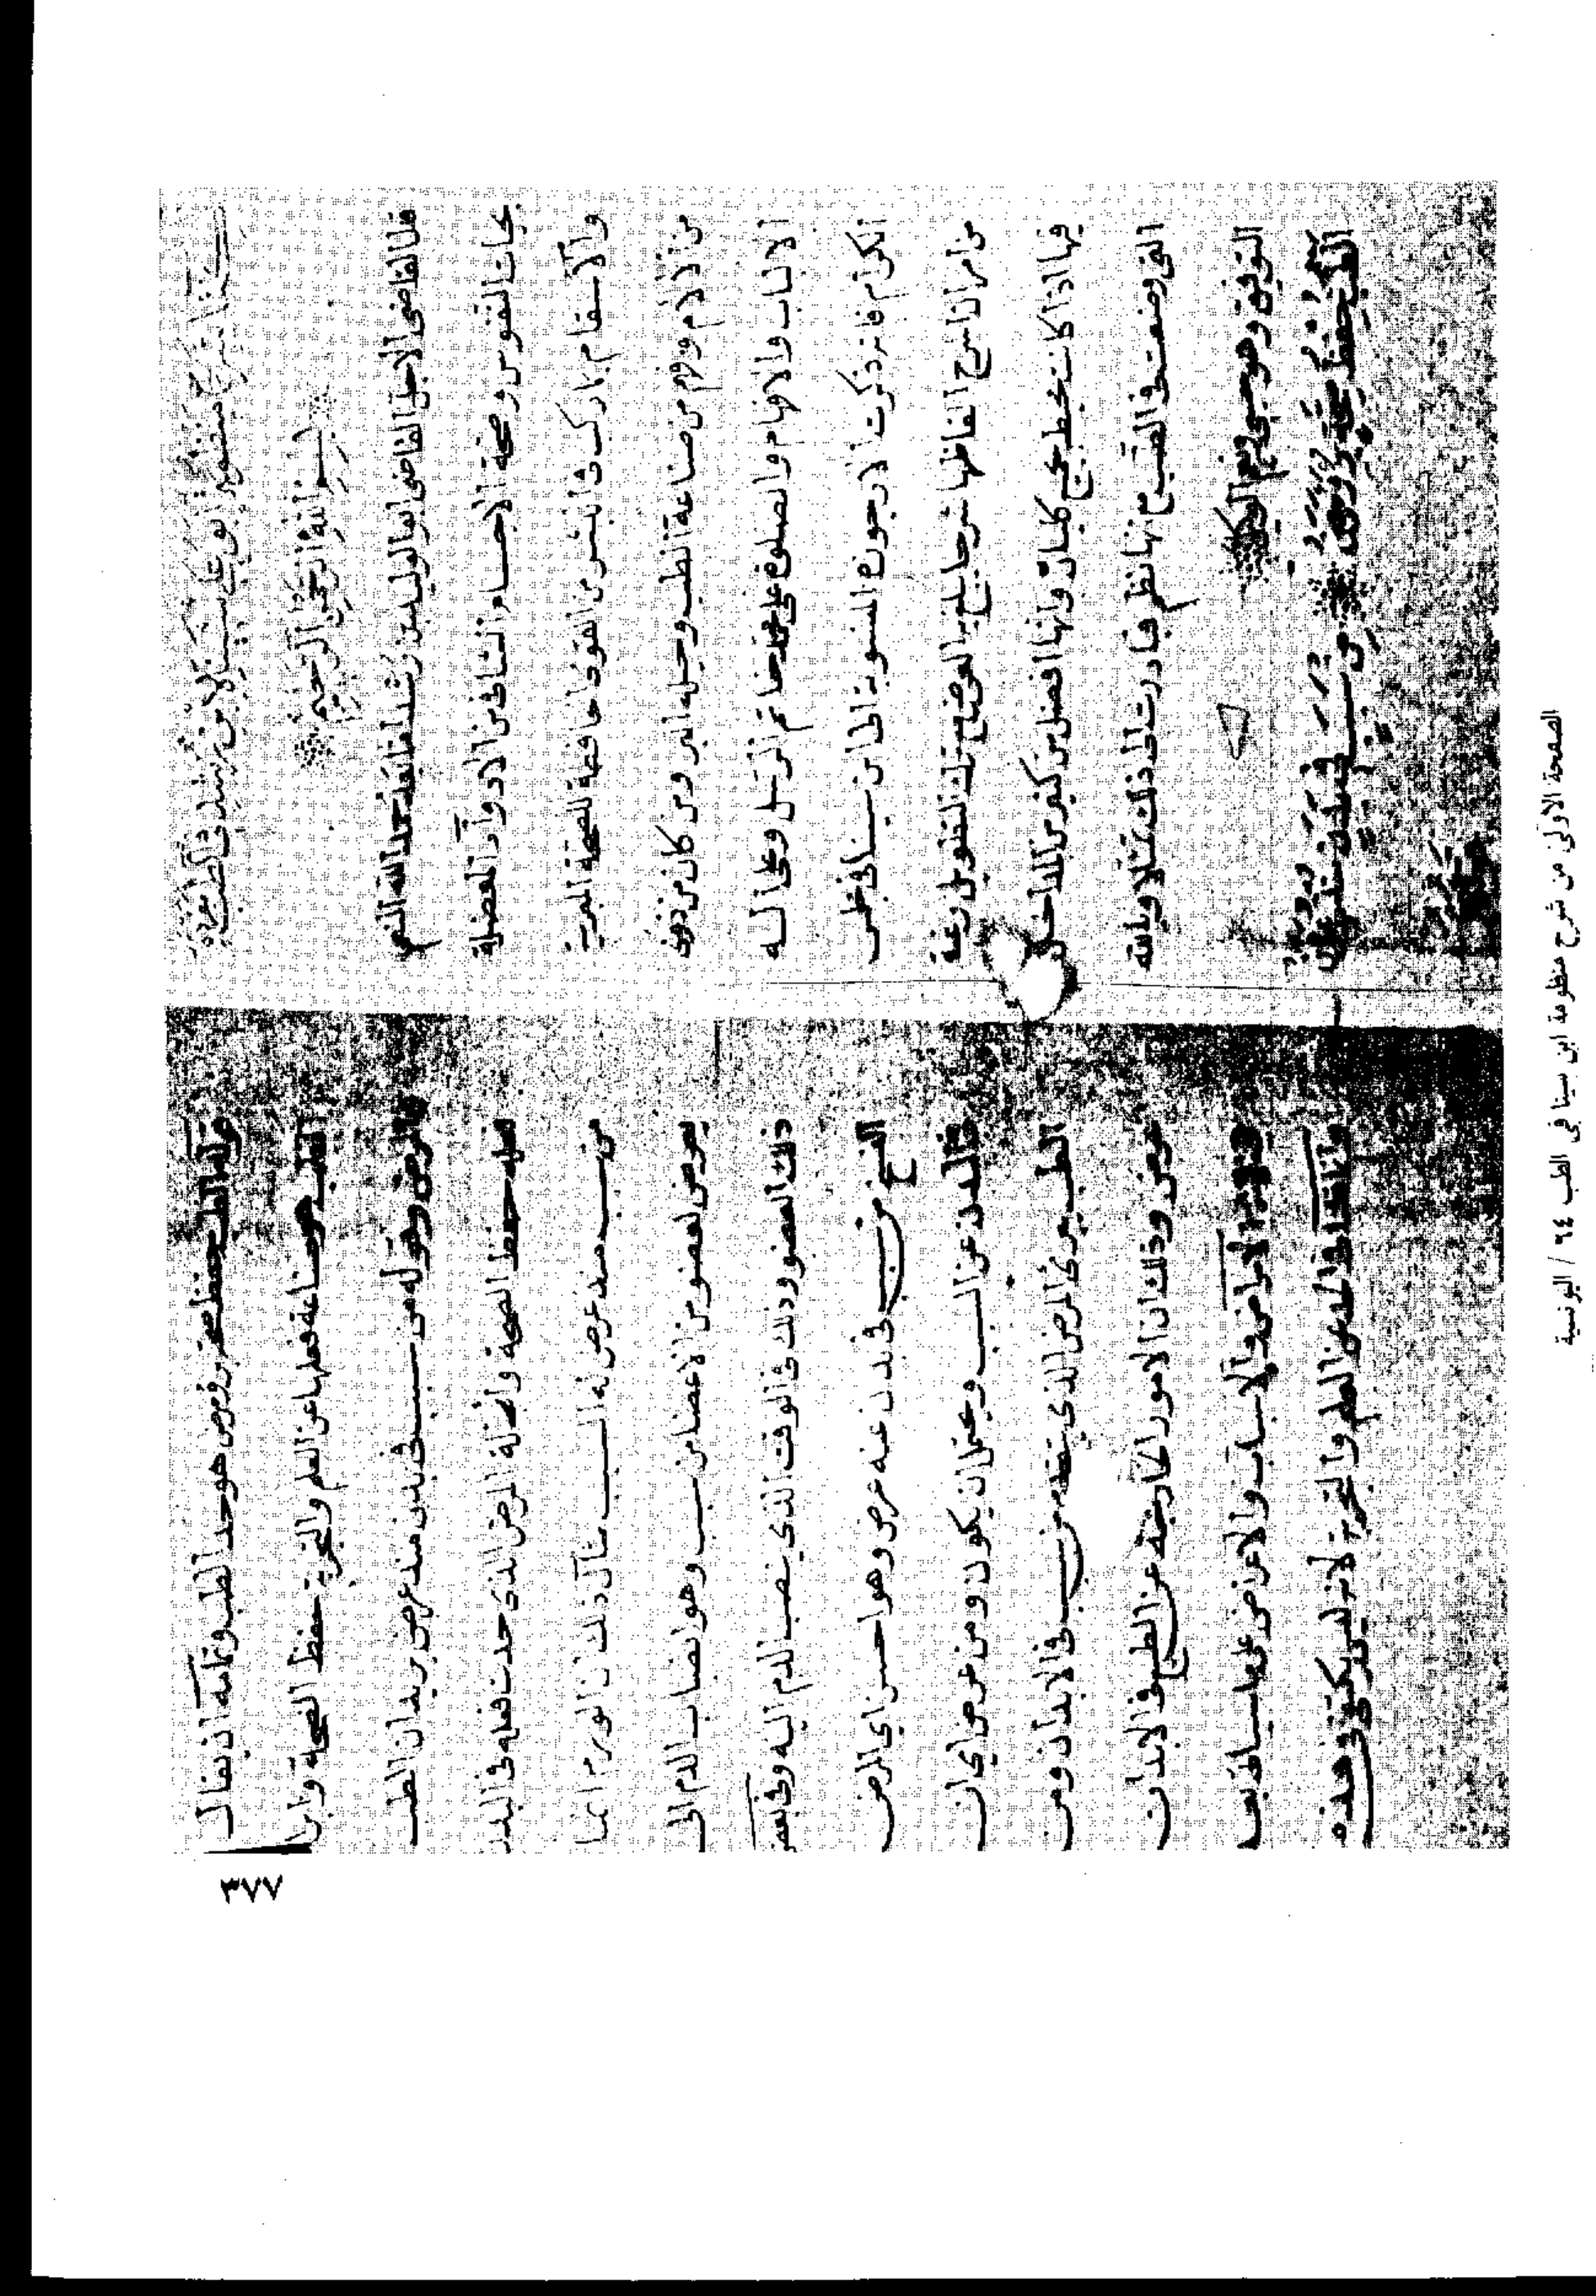 بسم الله الرحمن الرحيم
قال القاضي الاجل القاضي ابو الوليد بن رشد اما بعد حمد الله المنعم
بحيات النفوس وصحة الاجسام الشافي من الادواء المعضلة
والاسقام بما ركب في البشر من القوى الحافظة للصحة المبرية
من الالام وفهم من صناعة الطب وحيلة البرء من كان من ذوي
الالباب والافهام والصلوة على محمد خاتم الرسل وعلى اله
الكرام فانه ذكرت الارجوزة المنسوبة الى ابن سينا في
من امر ان اشرح الفاظها شرحا يبلغ به الغرض تارك التطويل رغبة
فيها اذا كانت تحيط بجميع كليات وانها افضل من كثير من المداخل
التي وضعت في الطب مع نظم فبادرت الى ذلك ممتثلا وبالله
التوفيق وهو حسبي ونعم الوكيل
الطب حفظ صحة برؤ مرض من سبب في بدن
قوله الطب حفظ صحة برؤ مرض هو حد الطب وتمامه ان يقال
الطب هو صناعة فعلها عن العلم والتجربة حفظ الصحة وابرا
المرض وقوله من سبب في بدن منذ عرض يريد ان الطب
فعله حفظ الصحة وازالة المرض الذي حدث فعله في البدن
من سبب منذ عرض له السبب مثال ذلك ان الورم انما
يعرض لعضو من الاعضا من سبب وهو انصباب الدم الى
ذلك العضو وذلك في الوقت الذي ينصب الدم اليه وفي بعض
النسخ من سبب في بدن عنه عرض وهو احسن اي المرض
في البدن عن السبب ويحتمل ان يكون ومن عرض اي ان
الطب يبرئ المرض الذي يتقدمه من سبب في الابدان ومن
عرض وذلك ان الامور الخارجة عن الطبع في الابدان
الامراض والاسباب والاعراض
العلم والتجربة لانه ليس يكتفى في هذه
الصفحة الاولى من شرح منظومة ابن سينا في الطب ٦٤ / اليونسية
٣٧٧